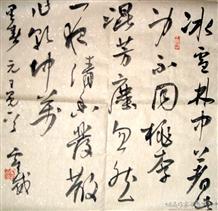 冰雪林中著此
身不同桃李
混芳塵忽然
一夜清香發散
作乾坤萬
里春元王冕